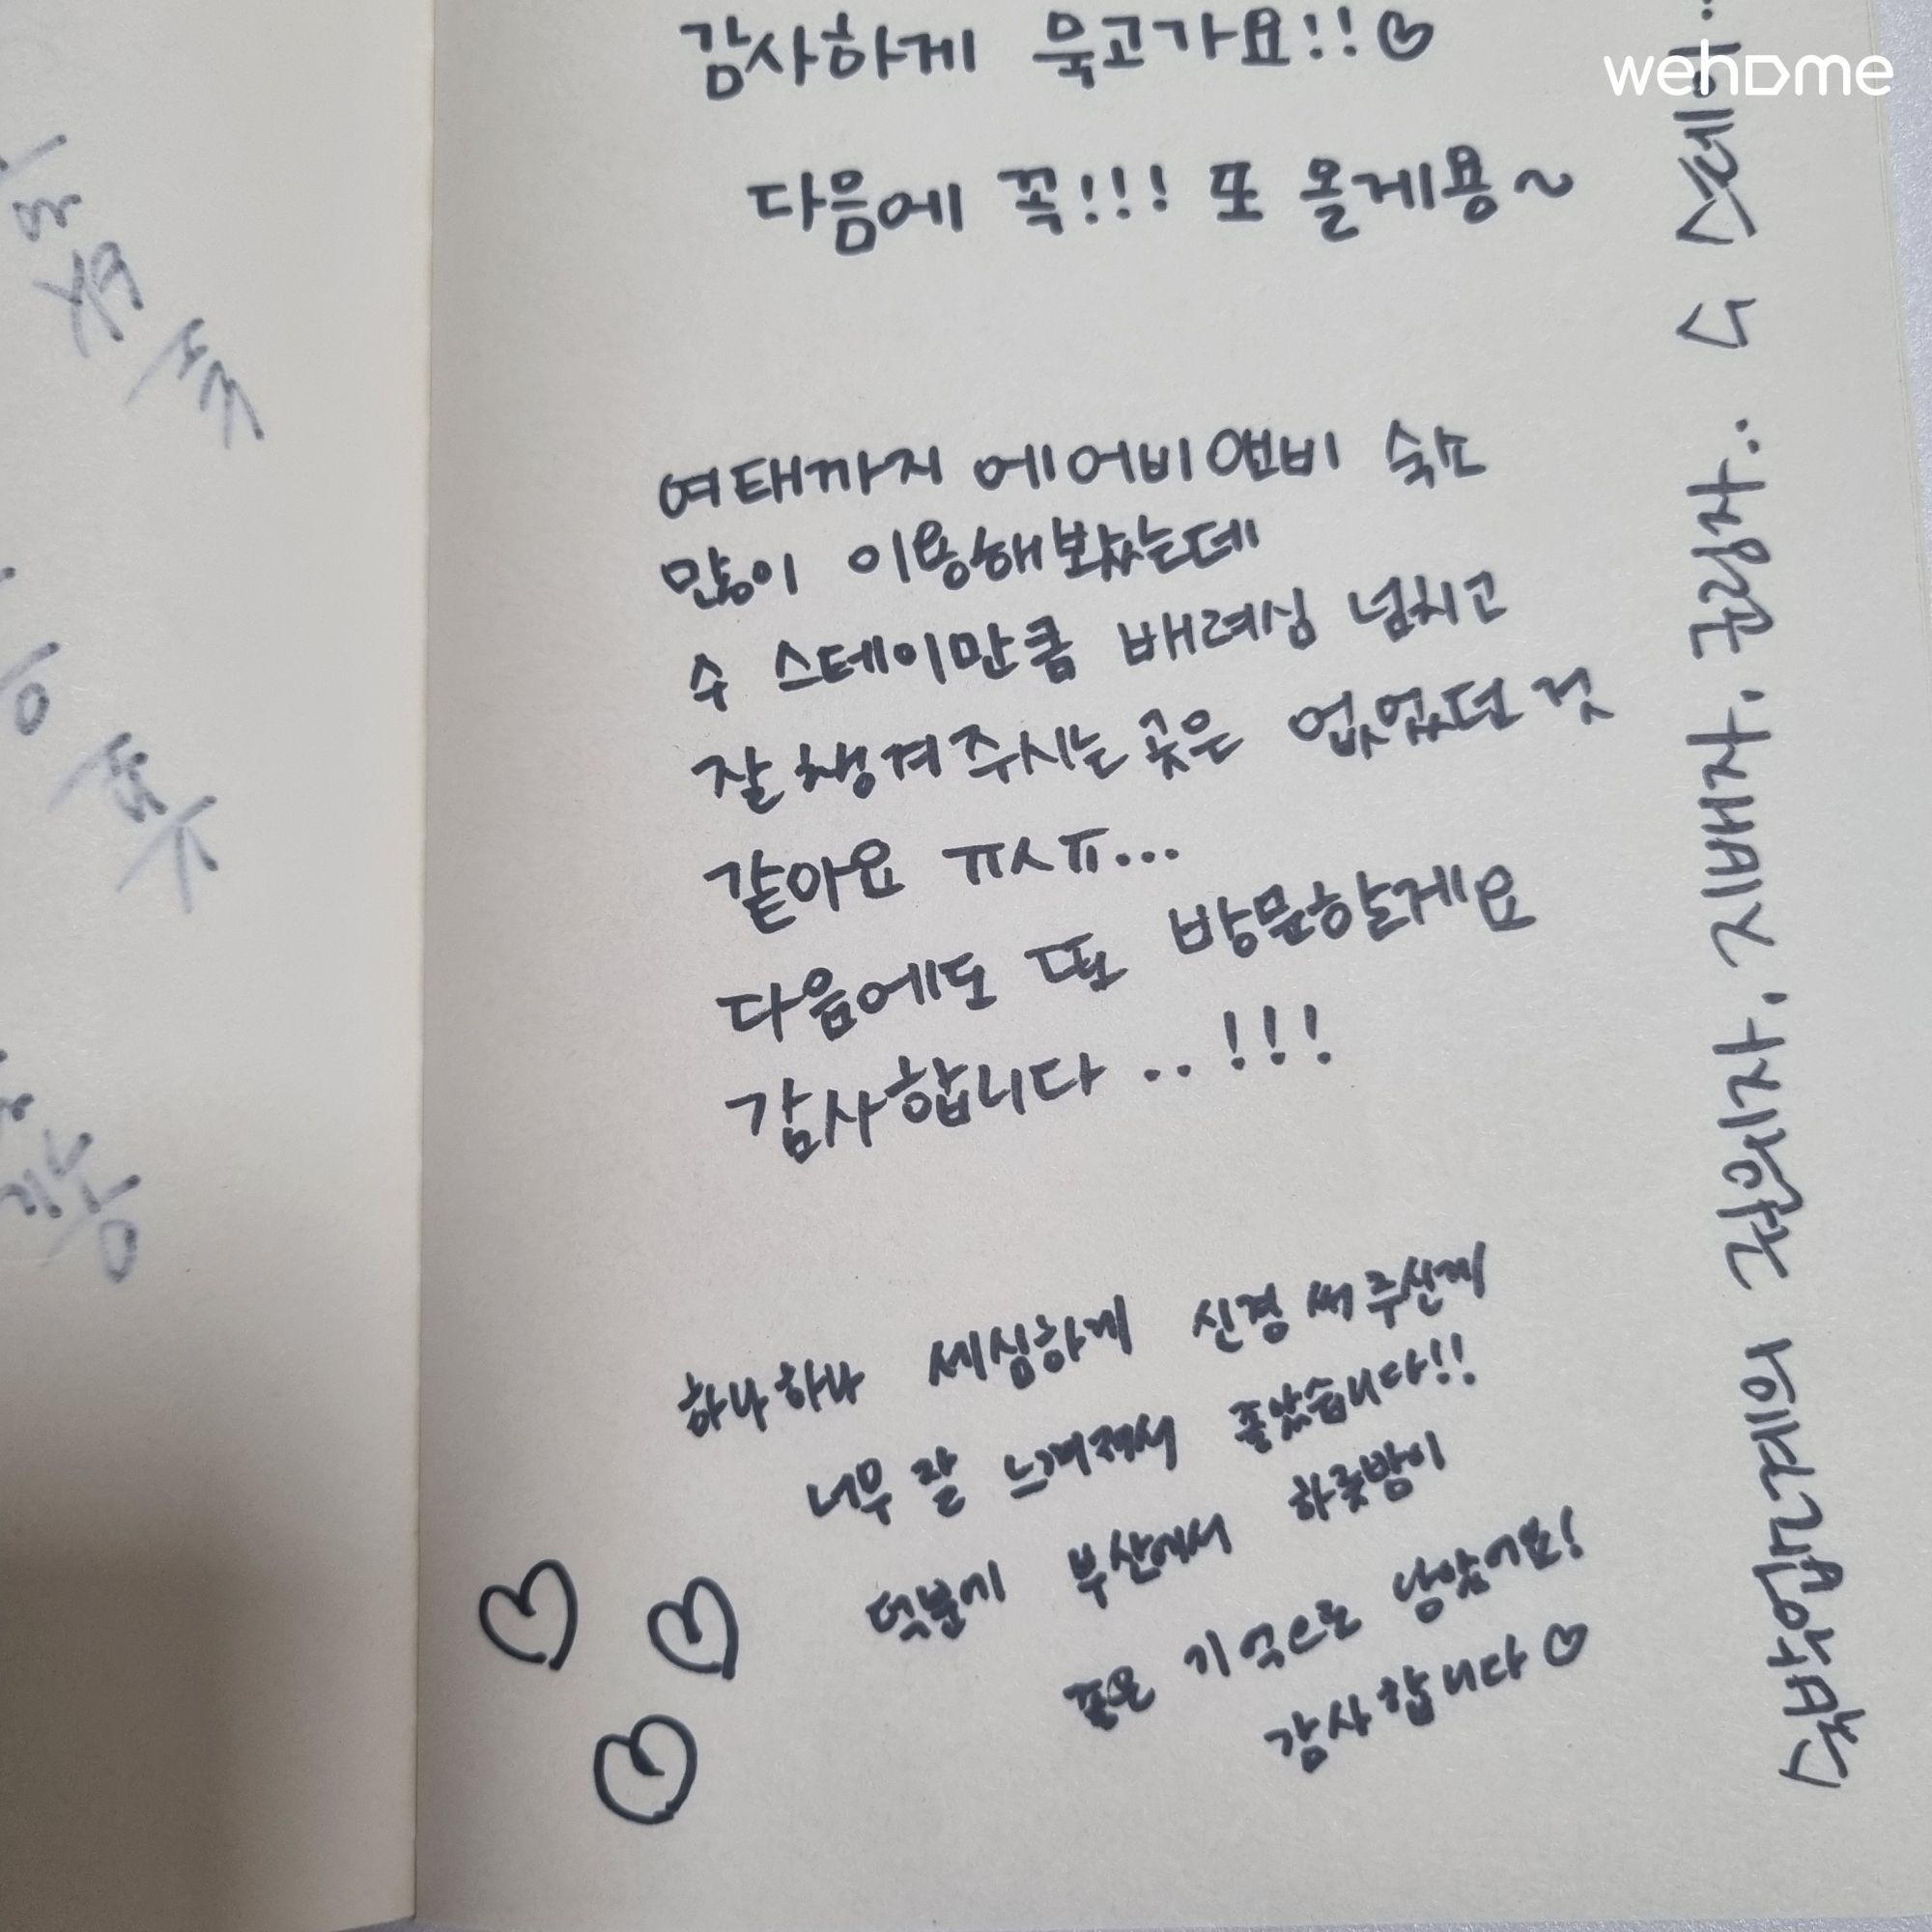 wehome
감사하게 묵고가요!!♡
다음에 꼭!!! 또 올게용~
여태까지 에어비앤비 숙소
많이 이용해봤는데
수 스테이만큼 배려심 넘치고
잘 챙겨주시는 곳은 없었던 것
같아요 ㅠㅅㅠ...
다음에도 또 방문할게요
감사합니다..!!!
하나하나 세심하게 신경써주신게
너무 잘 느껴져서 좋았습니다!!
덕분에 부산에서 하룻밤이
좋은 기억으로 남았어요!
감사합니다♡
숙박업계의 권위자. 지배자. 군림자.. 수 스테이..